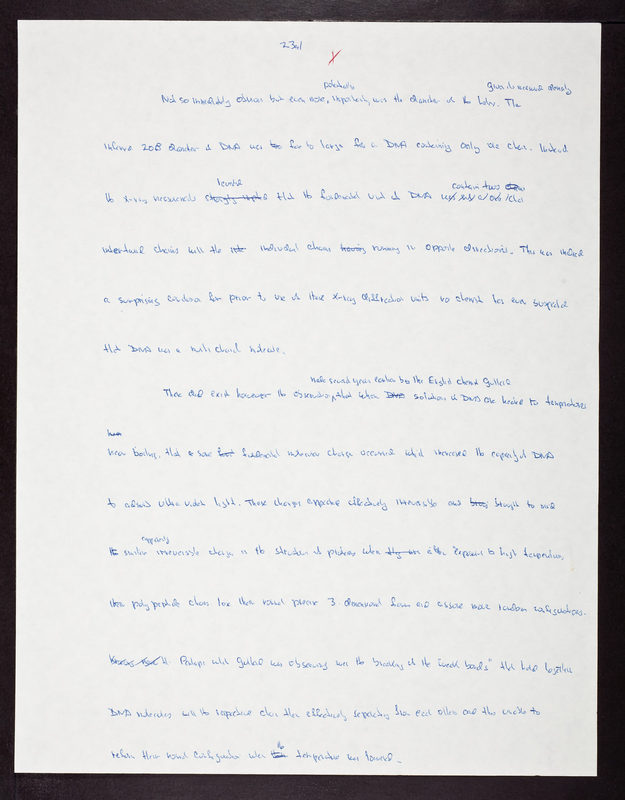 230/
potentially
Not so immediately obvious but even more, importantly, was the diameter of the helix. The
20Å diameter of DNA was too far to large for a DNA containing only one chain. Instead
revealed contain two
the X-ray measurements that the fundamental unit of DNA
intertwined chains with the individual chains having running in opposite directions. This was indeed
a surprising conclusion for prior to use of these X-ray diffraction units no chemist has even suspected
that DNA was a multi chained molecule.
made several years earlier by the English chemist Gulland
There did exist however the observation, that when DNA solutions of DNA are heated to temperatures
near boiling, that a some fundamental molecular change occurred which increased the capacity of DNA
to absorb ultra violet light. These changes appeared effectively irreversible and thought to be
apparently
similar irreversible change in the structure of proteins when either exposed to high temperatures,
polypeptide chains lose their normal precise 3 dimensional form and assume more random configurations.
Perhaps what Gulland was observing was the breaking of the "weak bonds" that hold together
DNA molecules with the respective chains then effectively separating from each other and thus unable to
return their normal configuration when the temperature was lowered.